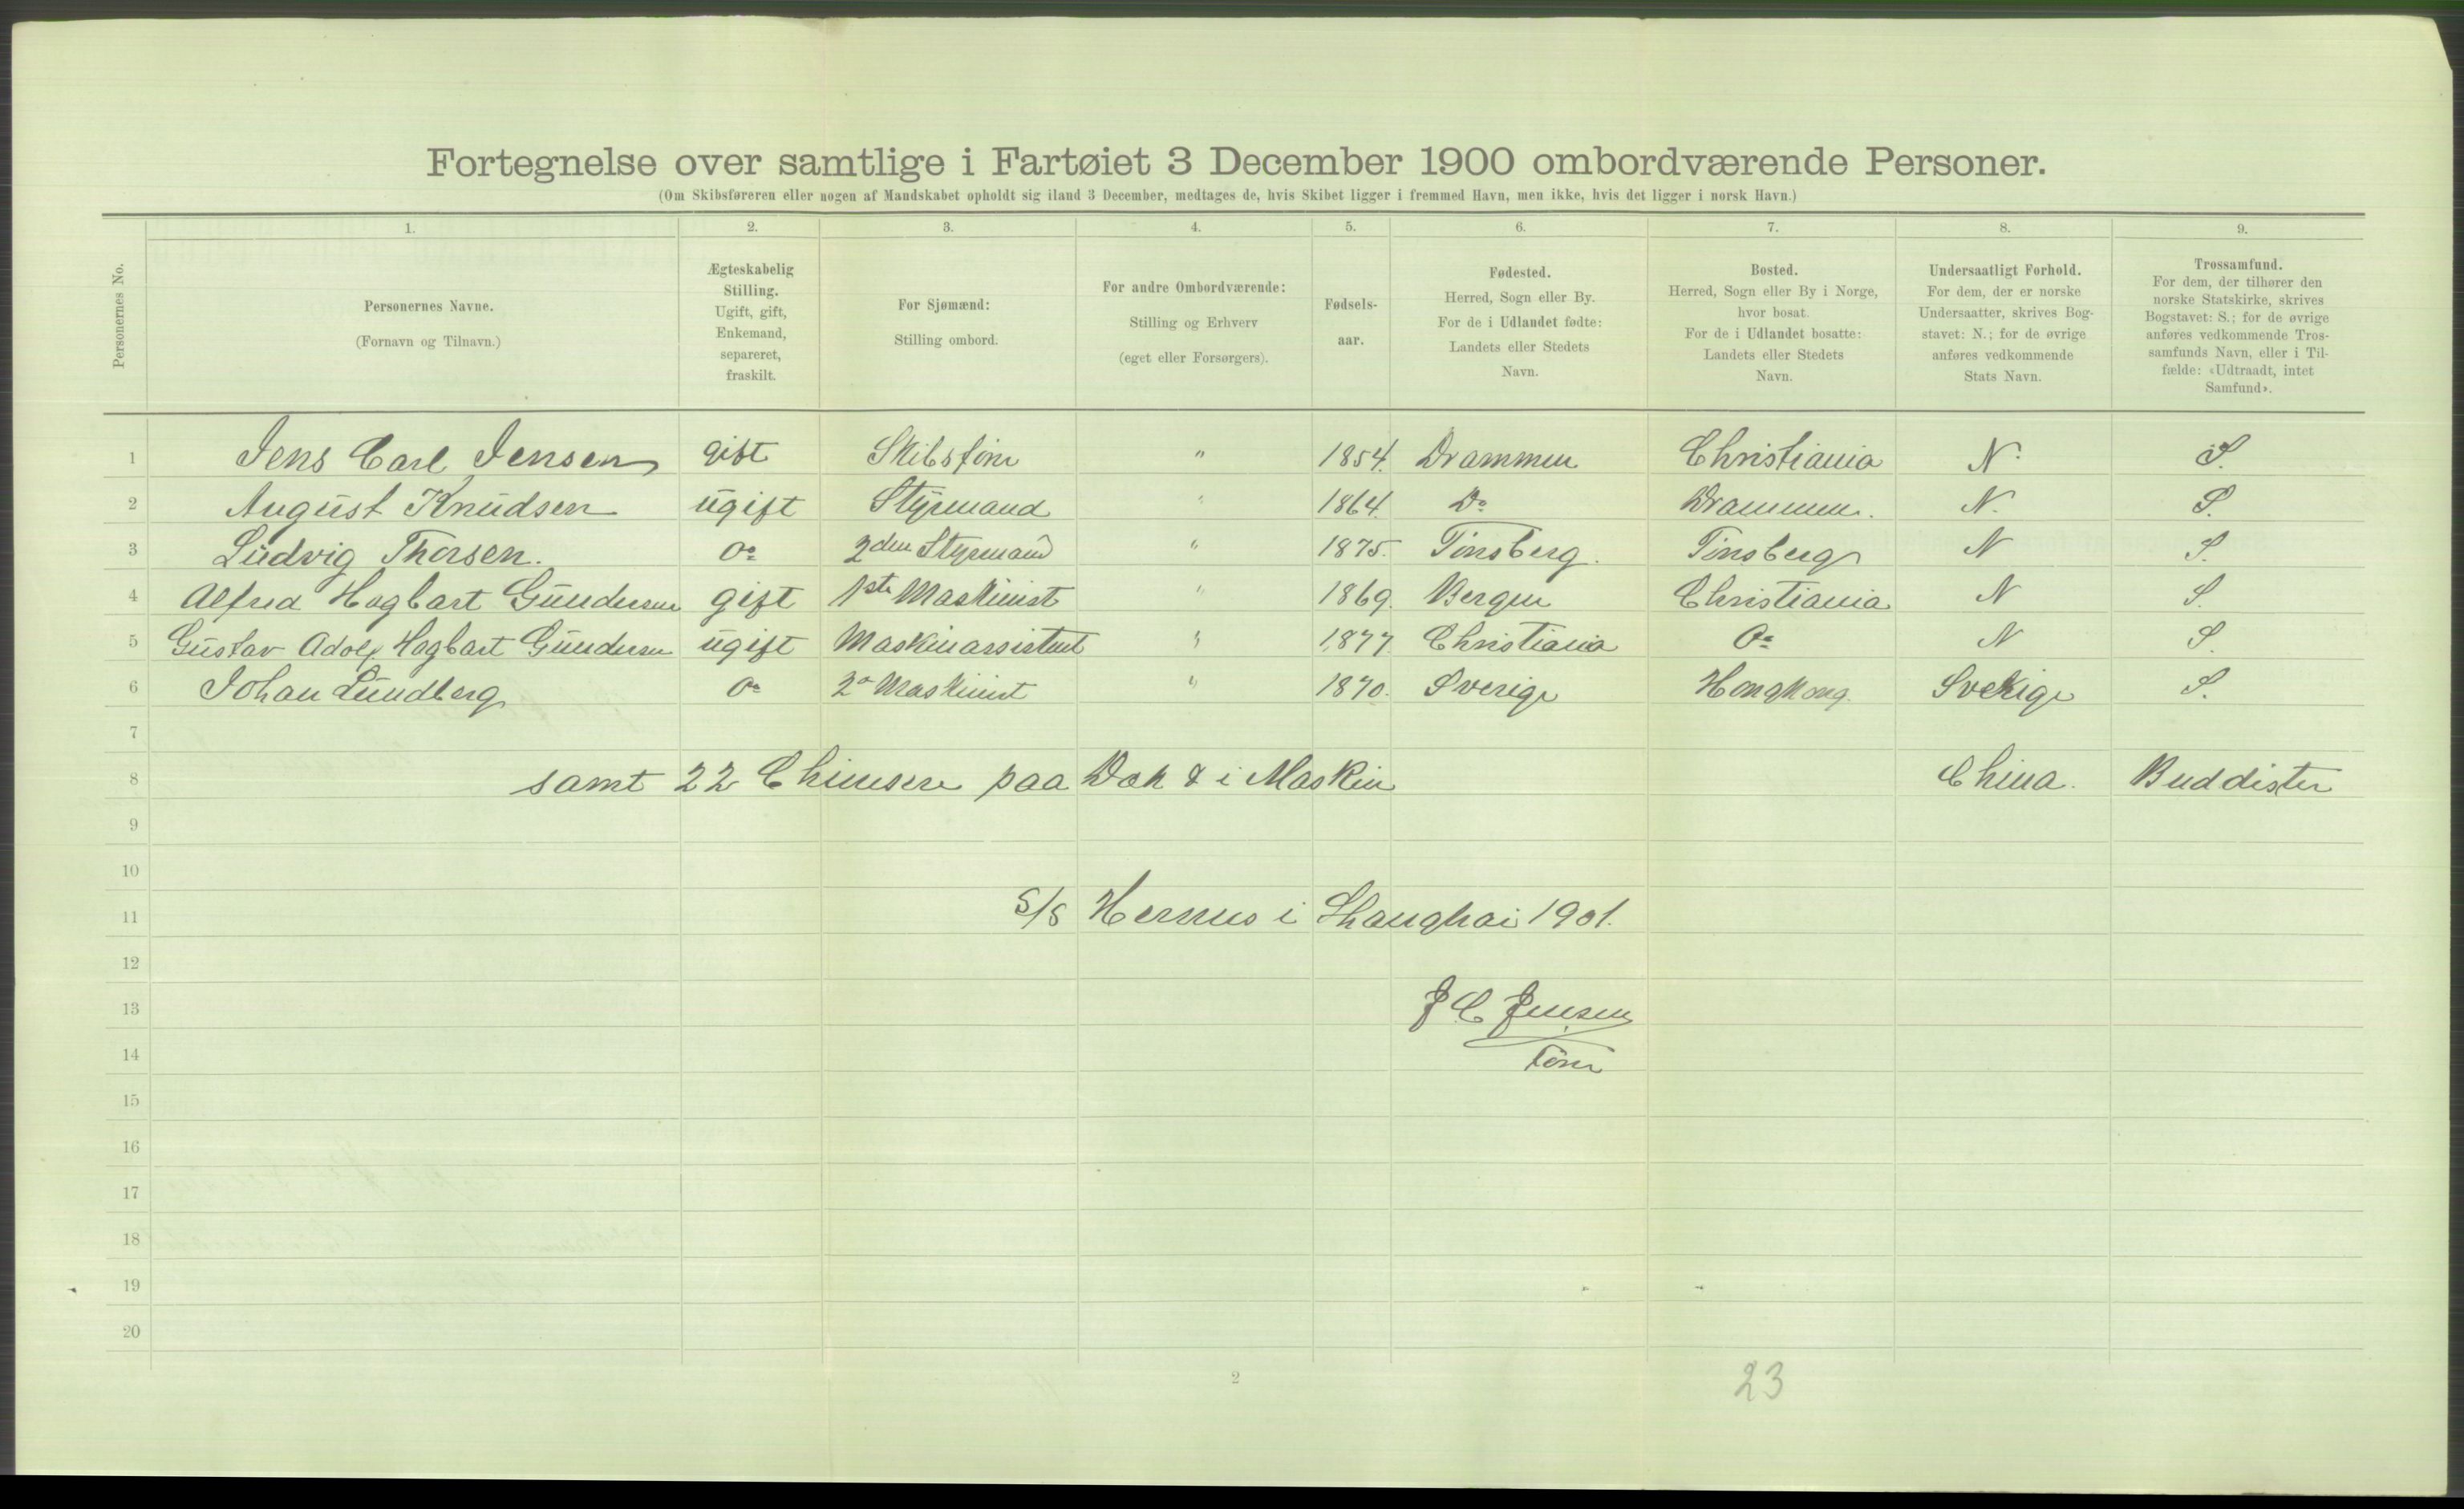 Fortegnelse over samtlige i Fartøiet 3 December 1900 ombordværende Personer.
(Om Skibsføreren eller nogen af Mandskabet opholdt sig iland 3 December, medtages de, hvis Skibet ligger i fremmed Havn, men ikke, hvis det ligger i norsk Havn.)
Personernes No.
1.
Personernes Navne.
(Fornavn og Tilnavn.)
2.
Ægteskabelig
Stilling.
Ugift, gift,
Enkemand,
separeret,
fraskilt.
3.
For Sjømænd:
Stilling ombord.
4.
For andre Ombordværende:
Stilling og Erhverv
(eget eller Forsørgers).
5.
Fødsels-
aar.
6.
Fødested.
Herred, Sogn eller By.
For de i Udlandet fødte:
Landets eller Stedets
Navn.
7.
Bosted.
Herred, Sogn eller By i Norge,
hvor bosat.
For de i Udlandet bosatte:
Landets eller Stedets
Navn.
8.
Undersaatligt Forhold.
For dem, der er norske
Undersaatter, skrives Bog-
stavet: N.; for de øvrige
anføres vedkommende
Stats Navn.
9.
Trossamfund.
For dem, der tilhører den
norske Statskirke, skrives
Bogstavet: S.; for de øvrige
anføres vedkommende Tros-
samfunds Navn, eller i Til-
fælde: «Udtraadt, intet
Samfund».
1 Jens Carl Jensen gift Skibsfører " 1854. Drammen Christiania N. S.
2 August Knudsen ugift Styrmand " 1864. Do Drammen. N. S.
3 Ludvig Thorsen. Do 2den Styrmand " 1875. Tønsberg. Tønsberg N S.
4 Alfred Hagbart Gundersen gift 1ste Maskinist " 1869. Bergen Christiania N S.
5 Gustav Adolf Hagbart Gundersen ugift Maskinassistent " 1877. Christiania Do N S.
6 Johan Lundberg Do 2n Maskinist " 1870. Sverige Hongkong. Sverige S.
7
8 samt 22 Chinesere paa Dæk & i Maskin China. Buddister
9
10
11 S/S Hermes i Shanghai 1901.
12
13 J C Jensen
14 Fører
15
16
17
18
19
20
2
23